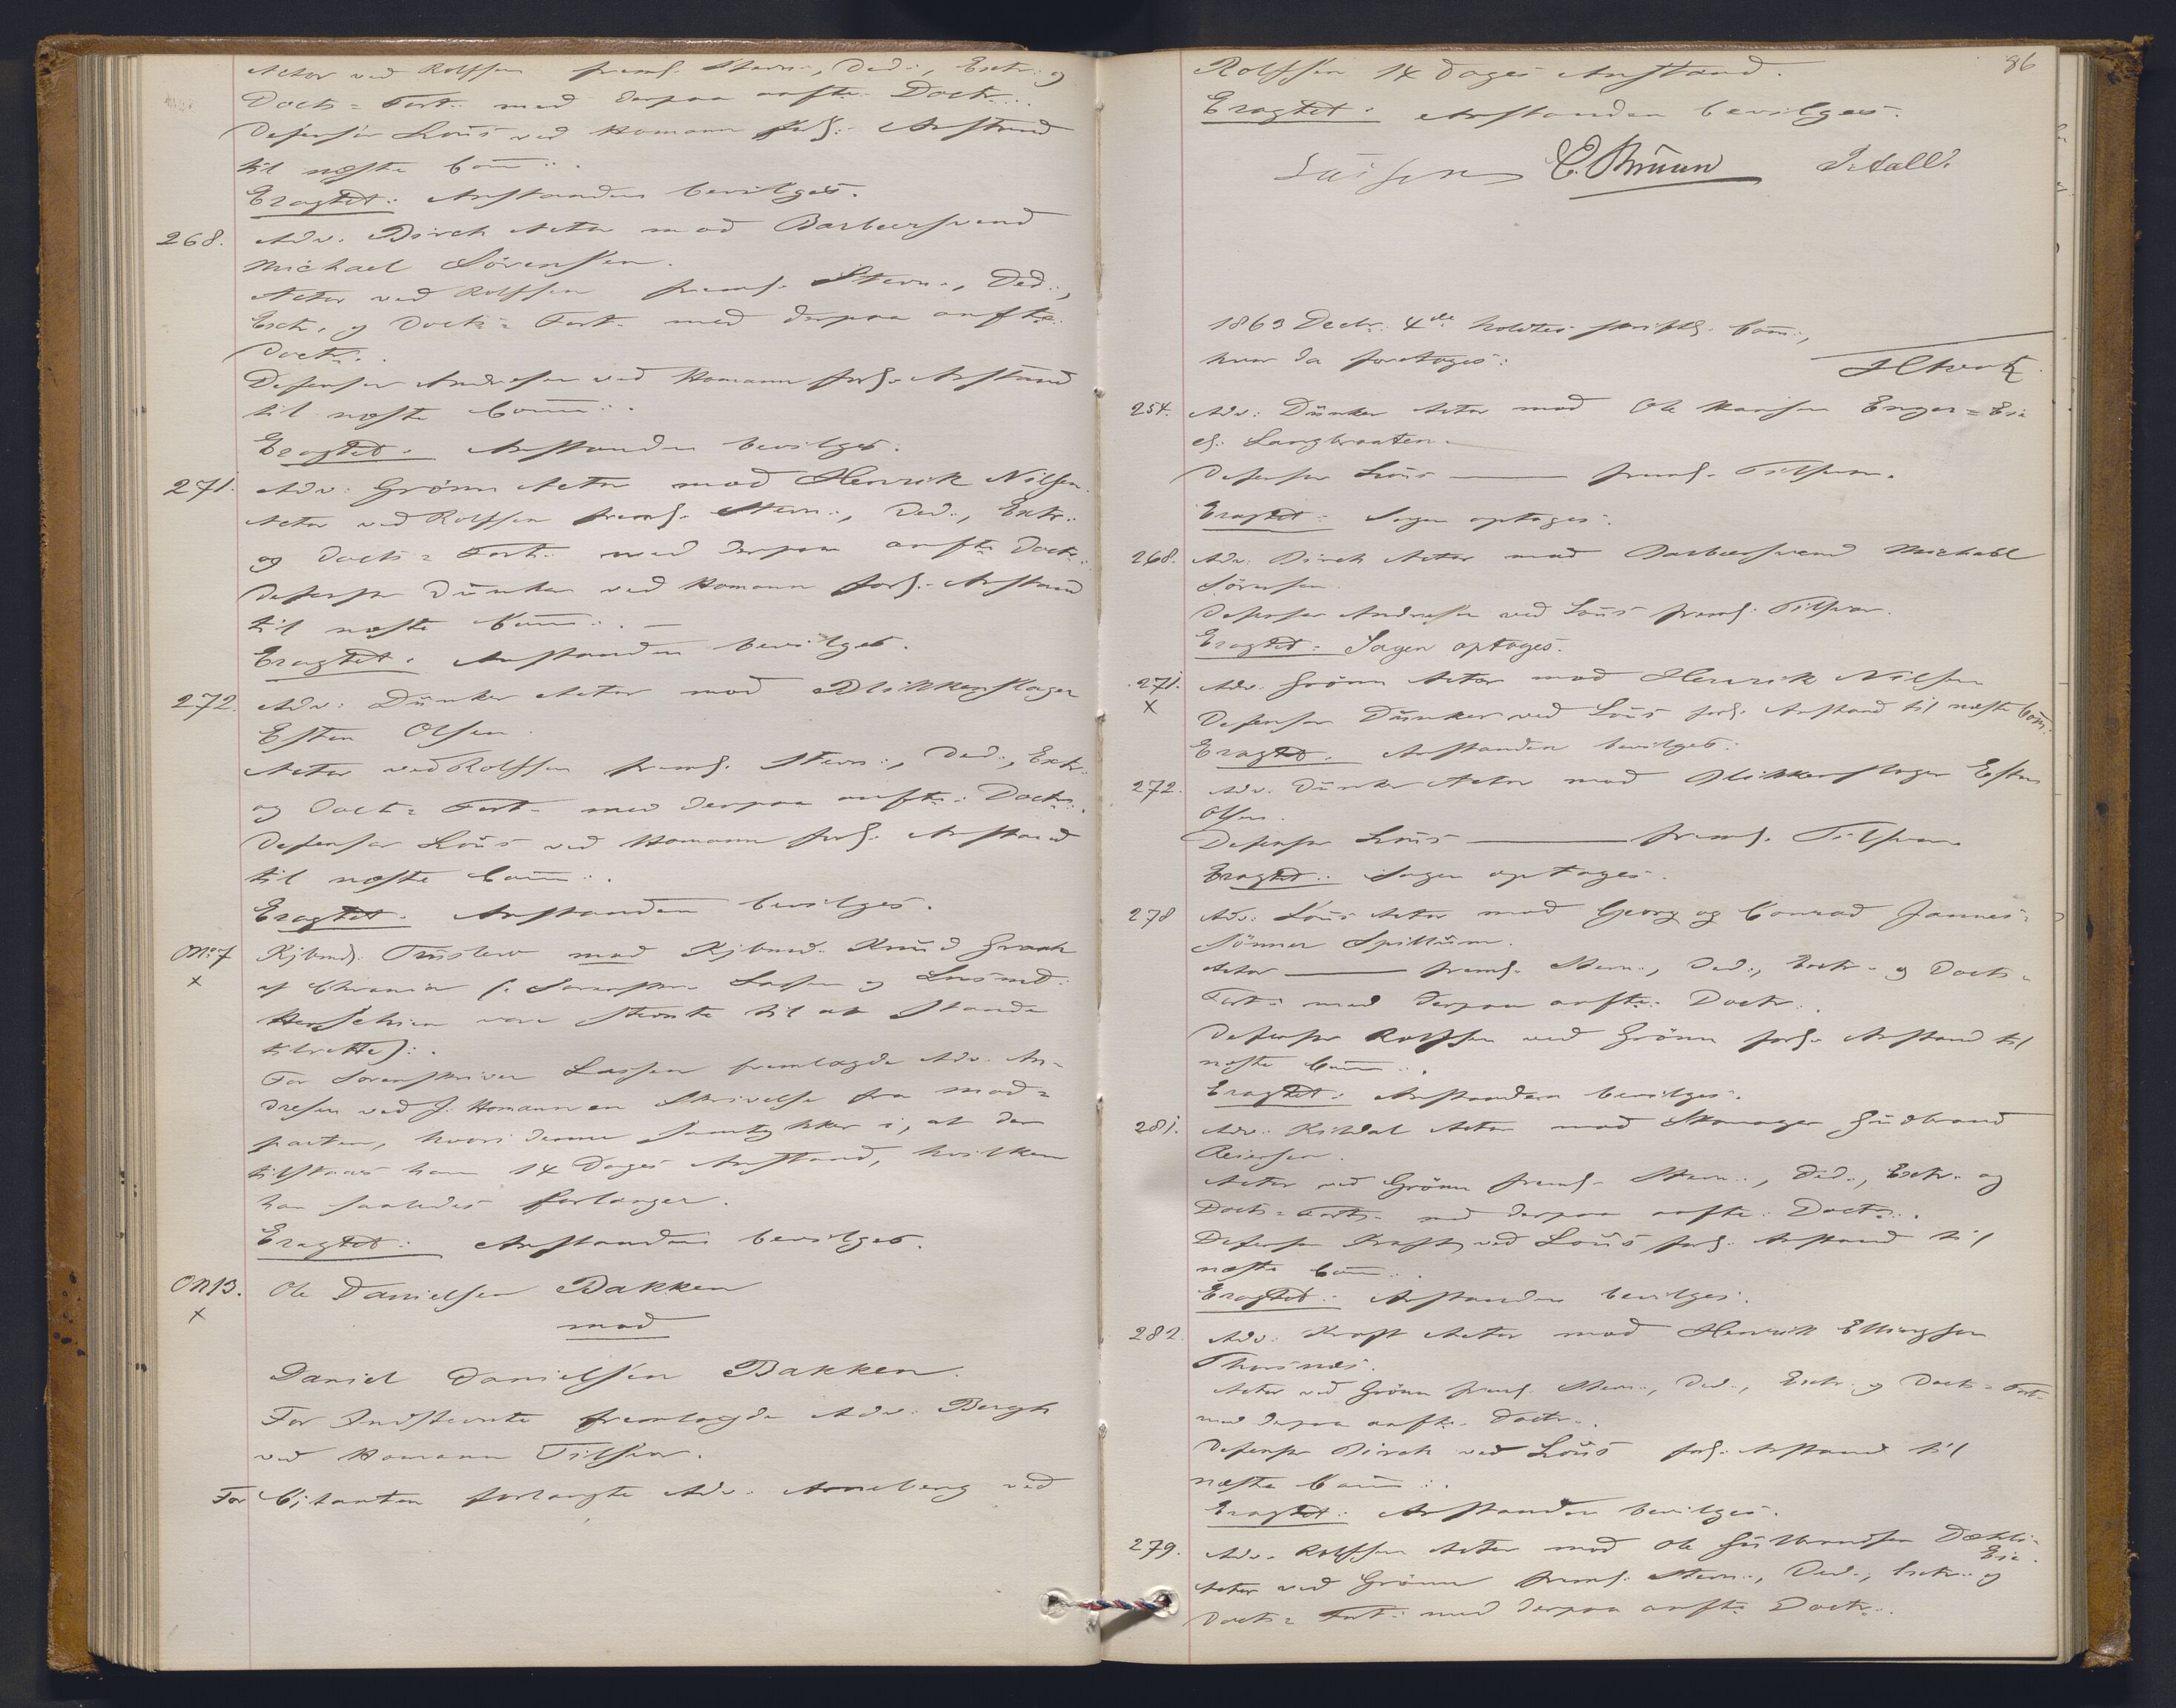 Actor ved Rolfsen freml. Stevn:, Ded:, Extr: og
Docts= Fort: med derpaa anfte. Doct:.
Defensor Lous ved Homann forl: Anstand
til næste Com:.
Eragtet: Anstanden bevilges.
268. Adv. Birch Actor mod Barbeersvend
Michael Sörensen.
Actor ved Rolfsen freml. Stevn:, Ded:,
Extr. og Docts= Fort. med derpaa anfte.
Doct:.
Defensor Andresen ved Homann forl. Anstand
til næste Com:.
Eragtet: Anstanden bevilges.
271. Adv: Grönn Actor mod Henrik Nilsen.
Actor ved Rolfsen freml. Stevn:, Ded:, Extr:
og Docts= Fort: med derpaa anfte Doct:.
Defensor Dünker ved Homann forl. Anstand
til næste Com:. —
Eragtet: Anstanden bevilges.
272. Adv: Dünker Actor mod Blikkenslager
Esten Olsen.
Actor ved Rolfsen freml. Stevn:, Ded:, Extr:
og Doct= Fort. med derpaa anfte: Doct:.
Defensor Lous ved Homann forl. Anstand
til næste Com:.
Eragtet: Anstanden bevilges.
Kjbmd. mod Kjbmd. Knud Graah
x
af Chrania (: Sorenskr Lassen og
vare stevnte til at stande
tilrette):.
For Sorenskriver Lassen fremlagde Adv. An-
dresen ved J. Homann en Skrivelse fra Mod=
parten, hvori denne samtykker i, at der
tilstaaes ham 14 Dages Anstand, hvilken
han saaledes forlanger.
Eragtet: Anstanden bevilges.
ON13. Ole Danielsen Bakken
x
mod
Daniel Danielsen Bakken.
For Indstevnte fremlagde Adv: Bergh
ved Homann Tilsvar.
For Citanten forlangte Adv. Anneberg ved
86
Rolfsen 14 Dages Anstand.
Eragtet: Anstanden bevilges.
Lassen C. Bruun
1863 Decbr. 4de holdtes skriftl. Com:,
hvor da foretoges:
254. Adv: Dünker Actor mod Ole Hansen Enger=Eie
el. Langbraaten.
Defensor Lous —— freml. Tilsvar.
Eragtet: Sagen optages.
268. Adv: Birch Actor mod Barbeersvend Michael
Sörensen.
Defensor Andresen ved Lous freml. Tilsvar.
Eragtet: Sagen optages.
271. Adv. Grönn Actor mod Henrik Nilsen
x
Defensor Dünker ved Lous forl. Anstand til næste Com:
Eragtet: Anstanden bevilges:
272. Adv. Dünker Actor mod Blikkenslager Esten
Olsen.
Defensor Lous —— freml. Tilsvar.
Eragtet: Sagen optages.
278 Adv: Lous Actor mod Georg og Conrad Jannes=
Sönner Spillum.
Actor —— freml. Stevn:, Ded:, Extr. og Docts=
Fort: med derpaa anfte: Doct:.
Defensor Rolfsen ved Grönn forl. Anstand til
næste Com:.
Eragtet: Anstanden bevilges.
281. Adv: Kildal Actor mod Skomager Gudbrand
Reiersen.
Actor ved Grönn freml. Stevn:, Ded:, Extr. og
Docts= Fort. med derpaa anfte: Doct:.
Defensor Kraft ved Lous forl. Anstand til
næste Com:.
Eragtet: Anstanden bevilges.
282. Adv: Kraft Actor mod Henrik Ellingsen
Thorsnæs.
Actor ved Grönn freml. Stevn:, Ded:, Extr. og Docts= Fort.
med derpaa anfte. Doct:.
Defensor Birch ved Lous forl. Anstand til
næste Com:.
Eragtet: Anstanden bevilges.
279. Adv. Rolfsen Actor mod Ole Gulbrandsen Dæhli-
Eie.
Actor ved Grönn freml. Stevn:, Ded:, Extr: og
Docts= Fort: med derpaa anfte Doct:.